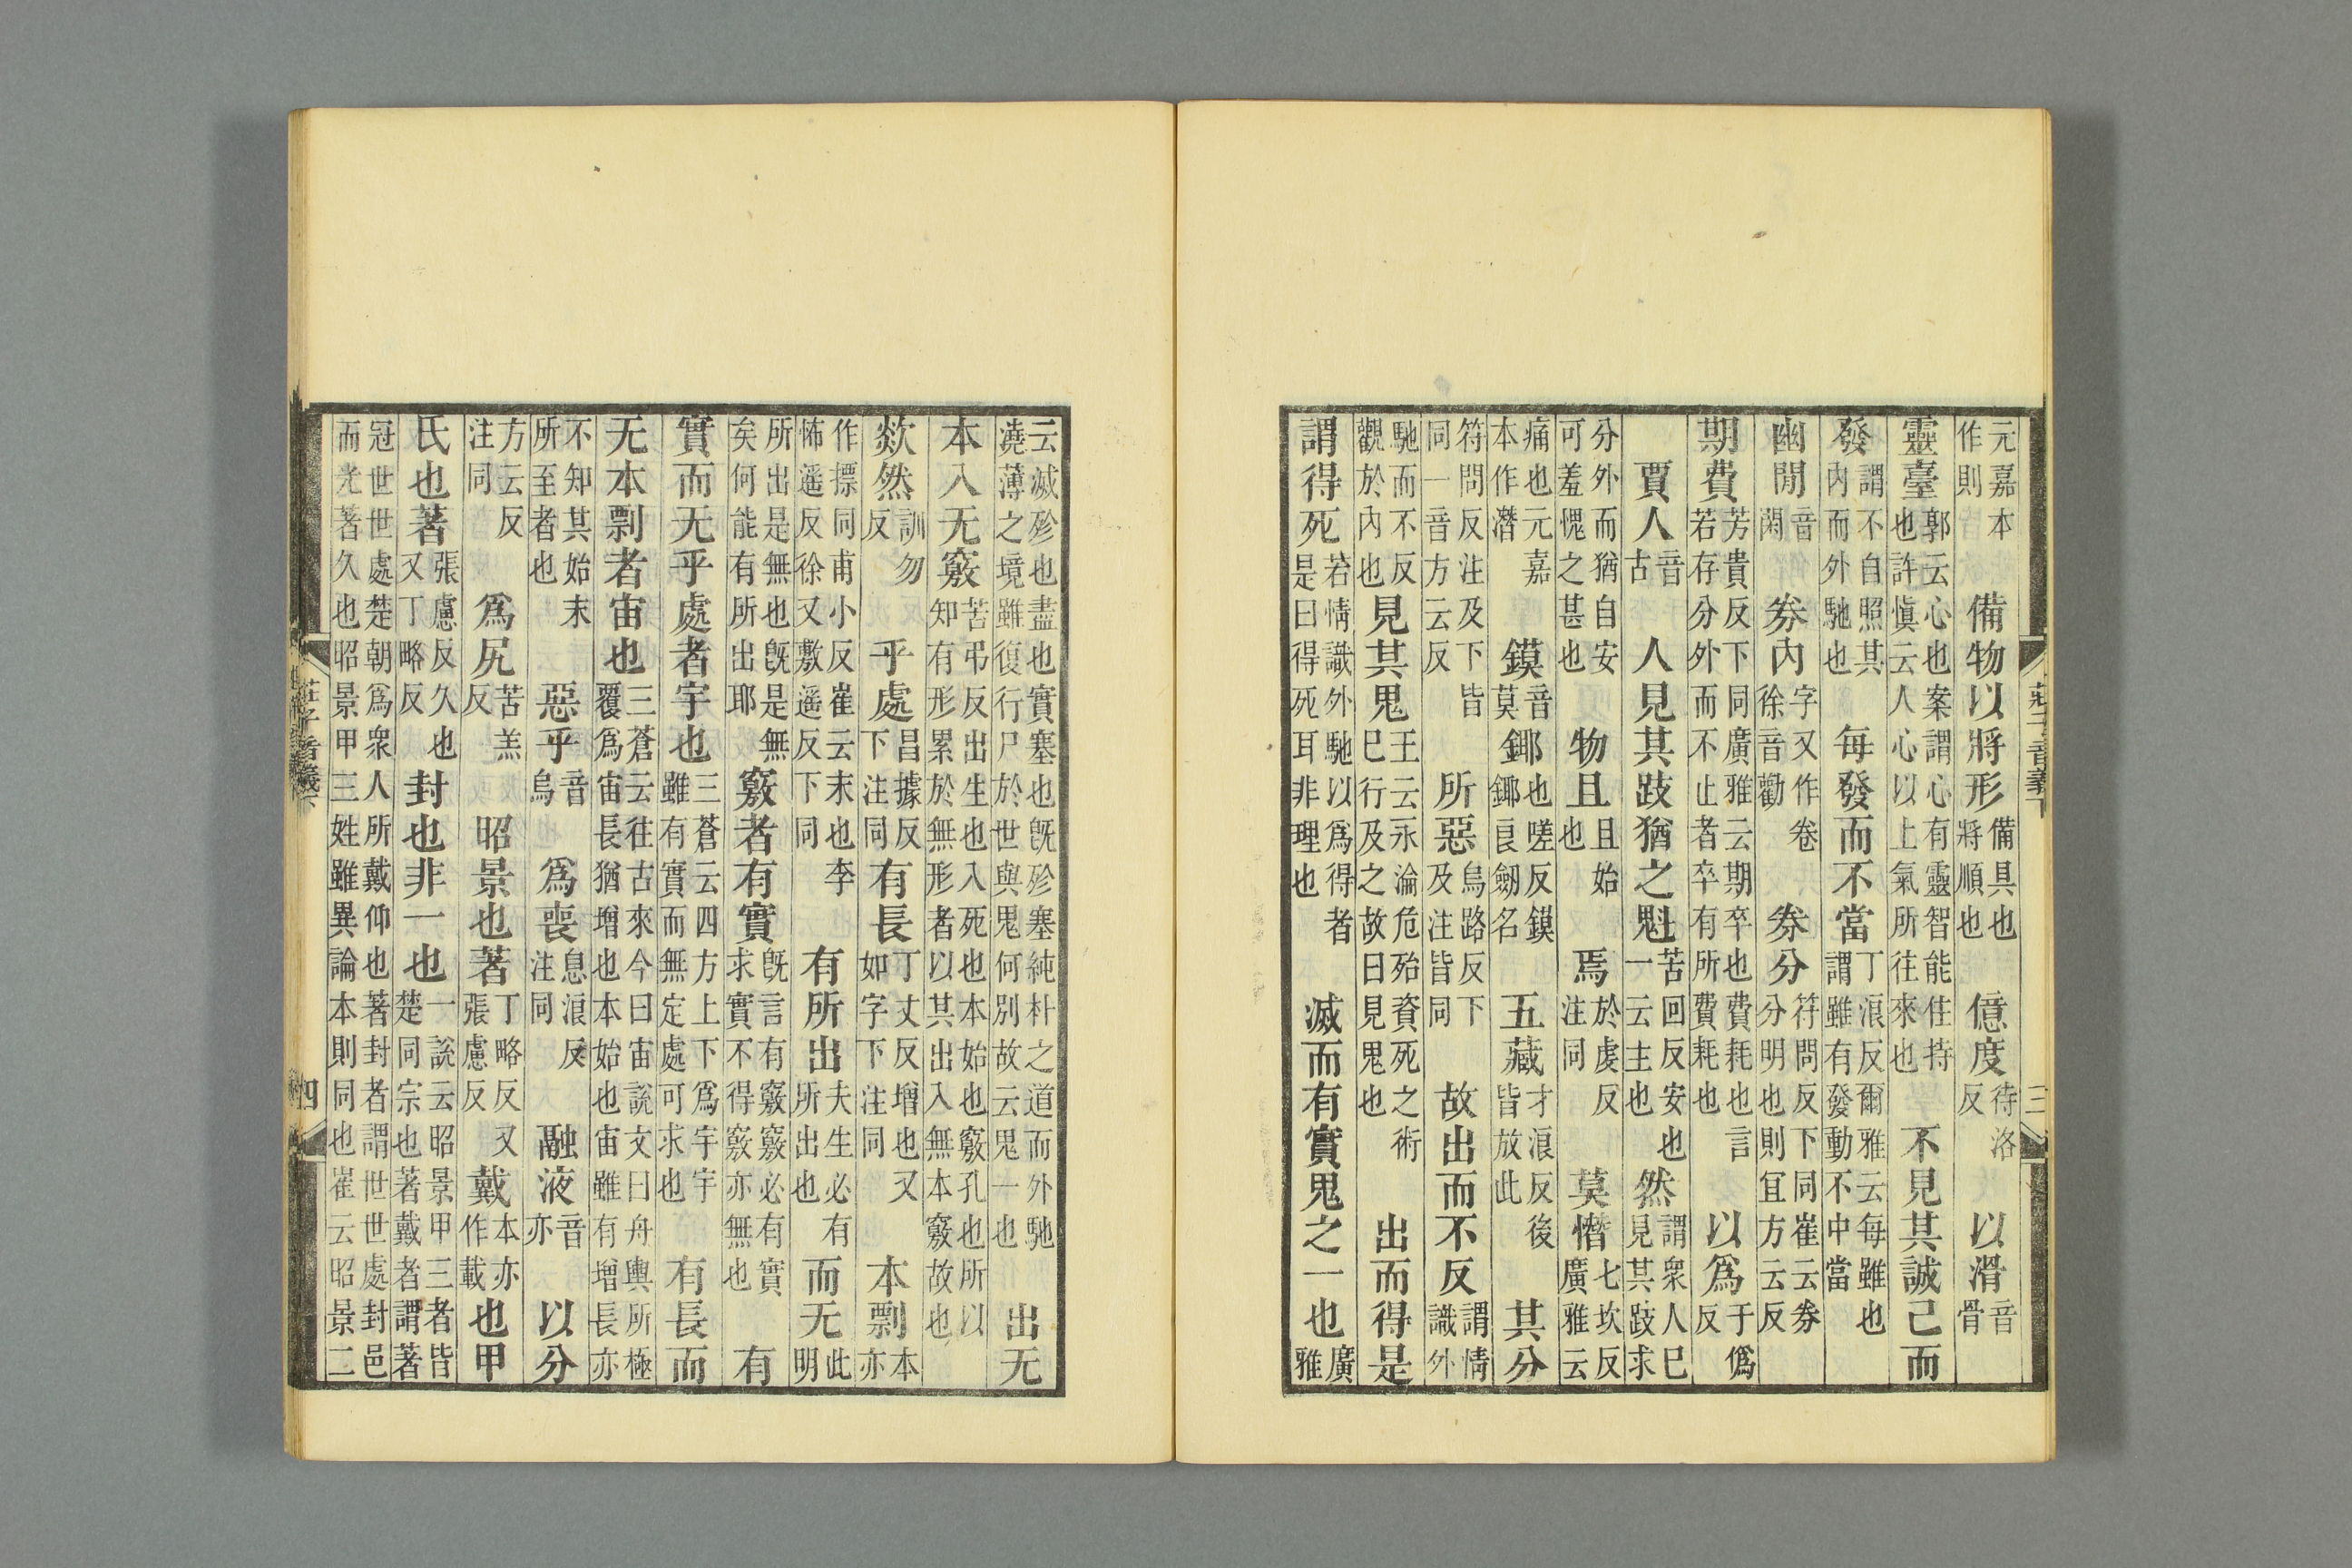 元嘉本作則 備物以將形備具也將順也 億度待洛反 以滑音骨
靈臺郭云心也案謂心有靈智能住持也許愼云人心以上氣所往來也 不見其誠己而
發謂不自照其內而外馳也 每發而不當丁浪反爾雅云每雖也謂雖有發動不中當
幽閒音閑 券內字又作卷徐音勸 券分符問反下同崔云券分明也則宜方云反
期費芳貴反下同廣雅云期卒也費耗也言若存分外而不止者卒有所費耗也 以爲于僞反
賈人音古 人見其跂猶之魁苦回反安也一云主也 然謂衆人巳見其跂求
分外而猶自安可羞愧之甚也 物且且始也 焉於虔反注同 莫憯七坎反廣雅云
痛也元嘉本作潛 鏌音莫 鎁也嗟反鏌鎁良劒名 五藏才浪反後皆放此 其分
符問反注及下皆同一音方云反 所惡烏路反下及注皆同 故出而不反謂情識外
馳而不反觀於內也 見其鬼王云永淪危殆資死之術巳行及之故曰見鬼也 出而得是
謂得死若情識外馳以爲得者是曰得死耳非理也 滅而有實鬼之一也廣雅
莊子音義下 三
云滅殄也盡也實塞也旣殄塞純朴之道而外馳澆薄之境雖復行尸於世與鬼何別故云鬼一也 出无
本入无竅苦弔反出生也入死也本始也竅孔也所以知有形累於無形者以其出入無本竅故也
欻然訓勿反 乎處昌據反下注同 有長丁丈反增也又如字下注同 本剽本亦
作摽同甫小反崔云末也李怖遥反徐又敷遥反下同 有所出夫生必有所出也 而无此明
所出是無也旣是無矣何能有所出耶 竅者有實旣言有竅竅必有實求實不得竅亦無也 有
實而无乎處者宇也三蒼云四方上下爲宇宇雖有實而無定處可求也 有長而
无本剽者宙也三蒼云往古來今曰宙說文曰舟輿所極覆爲宙長猶增也本始也宙雖有增長亦
不知其始末所至者也 惡乎音烏 爲喪息浪反注同 融液音亦 以分
方云反注同 爲尻苦羔反 昭景也著丁略反又張慮反 戴本亦作載 也甲
氏也著張慮反久也又丁略反 封也非一也一說云昭景甲三者皆楚同宗也著戴者謂著
冠世世處楚朝爲衆人所戴仰也著封者謂世世處封邑而光著久也昭景甲三姓雖異論本則同也崔云昭景二
莊子音義下 四